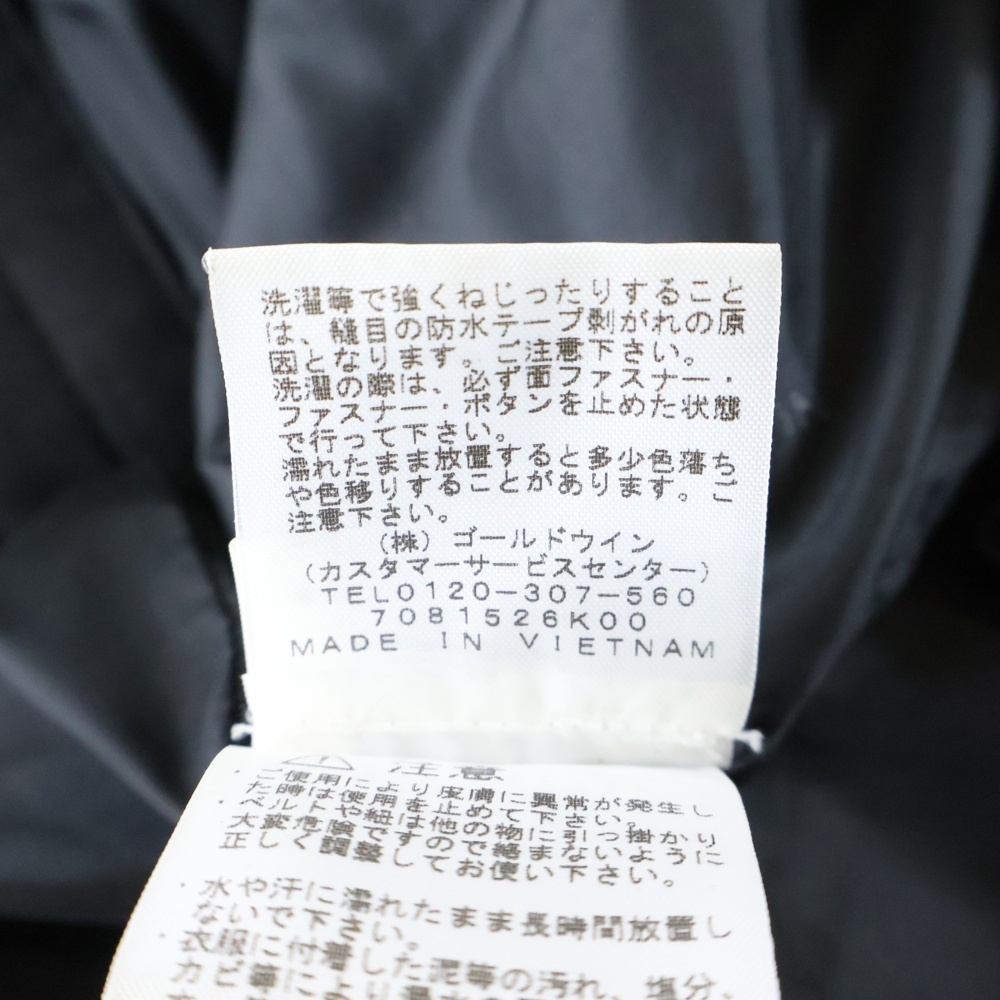 洗濯等で強くねじったりすること
は、縫目の防水テープ剥がれの原
因となります。ご注意下さい。
洗濯の際は、必ず面ファスナー・
ファスナー・ボタンを止めた状態
で行って下さい。
濡れたまま放置すると多少色落ち
や色移りすることがあります。ご
注意下さい。
(株) ゴールドウイン
(カスタマーサービスセンター)
TEL0120-307-560
7081526K00
MADE IN VIETNAM
注意
・ご使用により皮膚に異常が発生し
た時は使用を止めて下さい。
・ベルトや紐は他の物に引っ掛かり
大変危険ですので絡まないように
正しく調整してお使い下さい。
・水や汗に濡れたまま長時間放置し
ないで下さい。
・衣服に付着した泥等の汚れ、塩分、
カビ等に